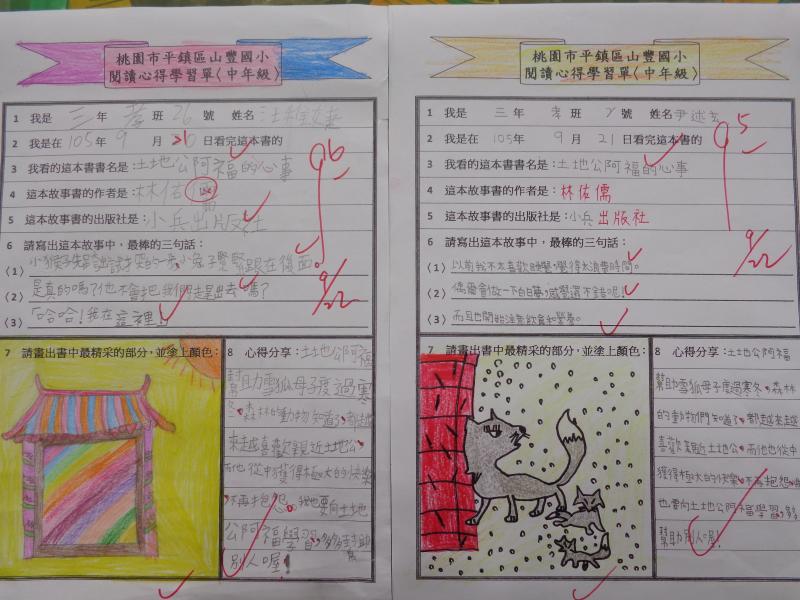 桃園市平鎮區山豐國小
閱讀心得學習單〈中年級〉
1 我是 三 年 孝 班 26 號 姓名
2 我是在 105 年 9 月 日看完這本書的
3 我看的這本書書名是:土地公阿福的心事
4 這本故事書的作者是:林佑儒
5 這本故事書的出版社是:小兵出版社
6 請寫出這本故事中,最棒的三句話:
(1) 小兔子緊緊跟在後面。
(2) 是真的嗎?他不會把我們趕出去嗎?
(3) 「哈哈!我在這裡」
7 請畫出書中最精采的部分,並塗上顏色:
8 心得分享:土地公阿福
幫助雪狐母子度過寒
冬,森林的動物知道了,都越
來越喜歡親近土地公,
而他從中獲得極大的快樂
不再抱怨。我也要向土地
公阿福學習,多多幫助
別人喔!
96
9/22
桃園市平鎮區山豐國小
閱讀心得學習單〈中年級〉
1 我是 三 年 孝 班 2 號 姓名 尹
2 我是在 105 年 9 月 21 日看完這本書的
3 我看的這本書書名是:土地公阿福的心事
4 這本故事書的作者是:林佑儒
5 這本故事書的出版社是:小兵出版社
6 請寫出這本故事中,最棒的三句話:
(1) 以前我不太喜歡睡覺,覺得太浪費時間。
(2) 偶爾會做一下白日夢,感覺還不錯呢!
(3) 而且也開始注意飲食和營養。
7 請畫出書中最精采的部分,並塗上顏色:
8 心得分享:土地公阿福
幫助雪狐母子度過寒冬,森林
的動物們知道了,都越來越
喜歡親近土地公,而他也從中
獲得極大的快樂,不再抱怨,
也要向土地公阿福學習,
幫助別人喔!
95
9/22